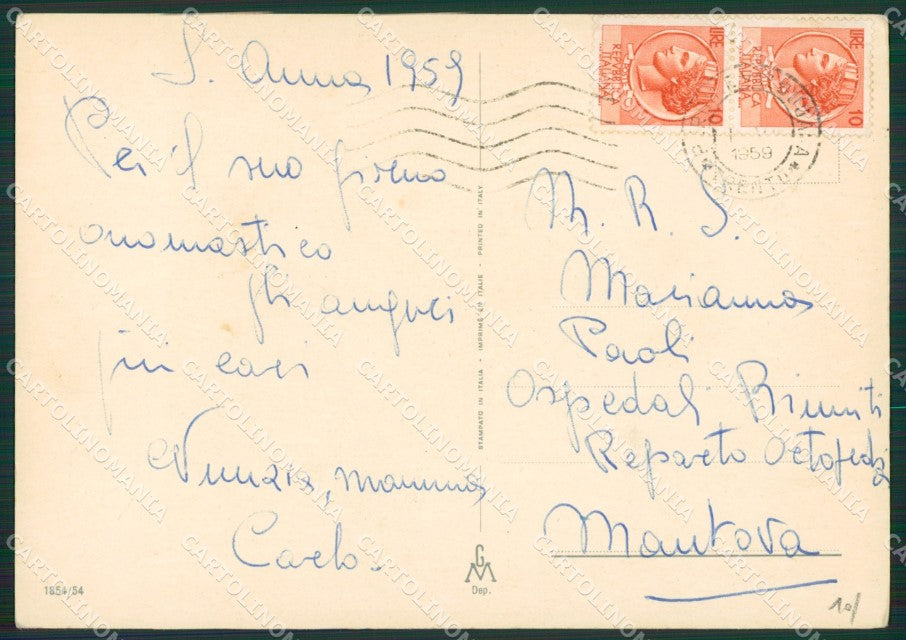 S. Anna 1959
Per il suo giorno
onomastico
gli auguri
più cari
Nunzia, mamma
Carlo.
1854/54
STAMPATO IN ITALIA - IMPRIMÉ EN ITALIE - PRINTED IN ITALY
GM
Dep.
LIRE 10
REPVBBLICA
ITALIANA
LIRE 10
REPVBBLICA
ITALIANA
1959
M. R. S.
Marianna
Paoli
Ospedali Riuniti
Reparto Ortopedia
Mantova
10/
CARTOLINOMANIA